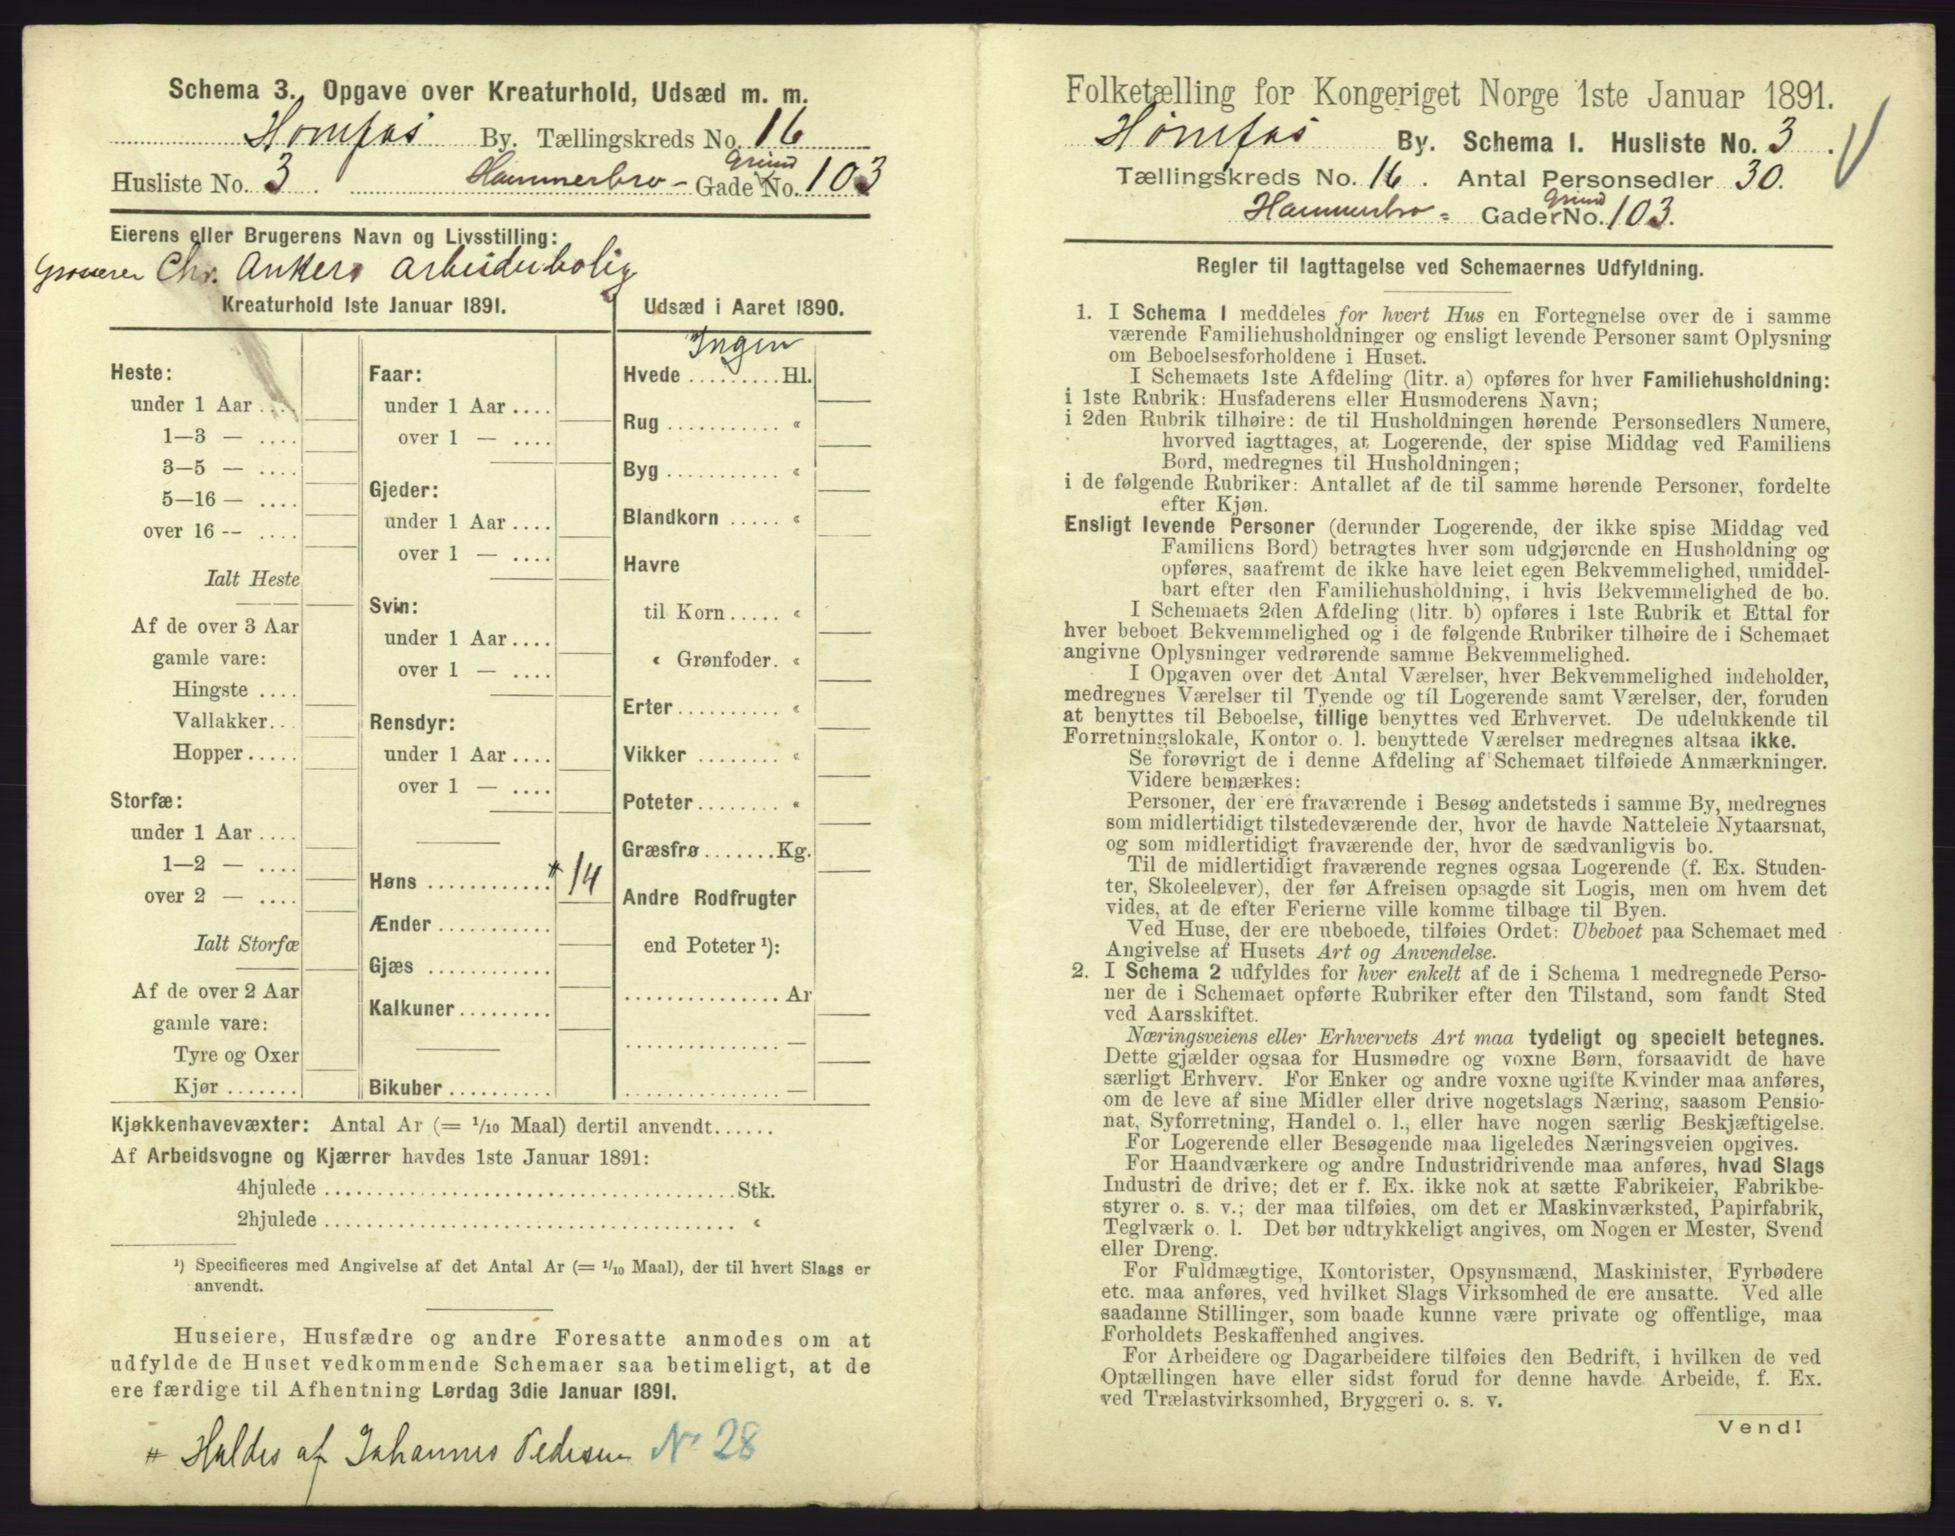 Schema 3. Opgave over Kreaturhold, Udsæd m. m.
Hønefos By. Tællingskreds No. 16
Husliste No. 3 Hammerbro- Gade Grund No. 103
Eierens eller Brugerens Navn og Livsstilling:
Chr. Ankers Arbeiderbolig
Kreaturhold 1ste Januar 1891.
Heste:
under 1 Aar ....
1—3 — ....
3—5 — ....
5—16 — ....
over 16 -- ....
Ialt Heste
Af de over 3 Aar
gamle vare:
Hingste ....
Vallakker...
Hopper.....
Storfæ:
under 1 Aar ....
1—2 — ....
over 2 — ....
Ialt Storfæ
Af de over 2 Aar
gamle vare:
Tyre og Oxer
Kjør .......
Faar:
under 1 Aar ....
over 1 — ....
Gjeder:
under 1 Aar ....
over 1 — ....
Svin:
under 1 Aar ....
over 1 — ....
Rensdyr:
under 1 Aar ....
over 1 — ....
Høns ............ * 14
Ænder ...........
Gjæs ............
Kalkuner .........
Bikuber ..........
Udsæd i Aaret 1890.
Ingen
Hvede .........Hl.
Rug ........... «
Byg ........... «
Blandkorn ..... «
Havre
til Korn ..... «
« Grønfoder. «
Erter.......... «
Vikker ........ «
Poteter........ «
Græsfrø.......Kg.
Andre Rodfrugter
end Poteter ¹):
...............Ar
............... —
............... —
Kjøkkenhavevæxter: Antal Ar (= 1/10 Maal) dertil anvendt......
Af Arbeidsvogne og Kjærrer havdes 1ste Januar 1891:
4hjulede ........................................Stk.
2hjulede ........................................ «
¹) Specificeres med Angivelse af det Antal Ar (= 1/10 Maal), der til hvert Slags er
anvendt.
Huseiere, Husfædre og andre Foresatte anmodes om at
udfylde de Huset vedkommende Schemaer saa betimeligt, at de
ere færdige til Afhentning Lørdag 3die Januar 1891.
* Holdes af Johannes Pedersen No 28
Folketælling for Kongeriget Norge 1ste Januar 1891.
Hønefos By. Schema I. Husliste No. 3.
Tællingskreds No. 16. Antal Personsedler 30.
Hammerbro- Gade Grund No. 103.
Regler til Iagttagelse ved Schemaernes Udfyldning.
1. I Schema I meddeles for hvert Hus en Fortegnelse over de i samme
værende Familiehusholdninger og ensligt levende Personer samt Oplysning
om Beboelsesforholdene i Huset.
I Schemaets 1ste Afdeling (litr. a) opføres for hver Familiehusholdning:
i 1ste Rubrik: Husfaderens eller Husmoderens Navn;
i 2den Rubrik tilhøire: de til Husholdningen hørende Personsedlers Numere,
hvorved iagttages, at Logerende, der spise Middag ved Familiens
Bord, medregnes til Husholdningen;
i de følgende Rubriker: Antallet af de til samme hørende Personer, fordelte
efter Kjøn.
Ensligt levende Personer (derunder Logerende, der ikke spise Middag ved
Familiens Bord) betragtes hver som udgjørende en Husholdning og
opføres, saafremt de ikke have leiet egen Bekvemmelighed, umiddel-
bart efter den Familiehusholdning, i hvis Bekvemmelighed de bo.
I Schemaets 2den Afdeling (litr. b) opføres i 1ste Rubrik et Ettal for
hver beboet Bekvemmelighed og i de følgende Rubriker tilhøire de i Schemaet
angivne Oplysninger vedrørende samme Bekvemmelighed.
I Opgaven over det Antal Værelser, hver Bekvemmelighed indeholder,
medregnes Værelser til Tyende og til Logerende samt Værelser, der, foruden
at benyttes til Beboelse, tillige benyttes ved Erhvervet. De udelukkende til
Forretningslokale, Kontor o. l. benyttede Værelser medregnes altsaa ikke.
Se forøvrigt de i denne Afdeling af Schemaet tilføiede Anmærkninger.
Videre bemærkes:
Personer, der ere fraværende i Besøg andetsteds i samme By, medregnes
som midlertidigt tilstedeværende der, hvor de havde Natteleie Nytaarsnat,
og som midlertidigt fraværende der, hvor de sædvanligvis bo.
Til de midlertidigt fraværende regnes ogsaa Logerende (f. Ex. Studen-
ter, Skoleelever), der før Afreisen opsagde sit Logis, men om hvem det
vides, at de efter Ferierne ville komme tilbage til Byen.
Ved Huse, der ere ubeboede, tilføies Ordet: Ubeboet paa Schemaet med
Angivelse af Husets Art og Anvendelse.
2. I Schema 2 udfyldes for hver enkelt af de i Schema 1 medregnede Perso-
ner de i Schemaet opførte Rubriker efter den Tilstand, som fandt Sted
ved Aarsskiftet.
Næringsveiens eller Erhvervets Art maa tydeligt og specielt betegnes.
Dette gjælder ogsaa for Husmødre og voxne Børn, forsaavidt de have
særligt Erhverv. For Enker og andre voxne ugifte Kvinder maa anføres,
om de leve af sine Midler eller drive nogetslags Næring, saasom Pensio-
nat, Syforretning, Handel o. l., eller have nogen særlig Beskjæftigelse.
For Logerende eller Besøgende maa ligeledes Næringsveien opgives.
For Haandværkere og andre Industridrivende maa anføres, hvad Slags
Industri de drive; det er f. Ex. ikke nok at sætte Fabrikeier, Fabrikbe-
styrer o. s. v.; der maa tilføies, om det er Maskinværksted, Papirfabrik,
Teglværk o. l. Det bør udtrykkeligt angives, om Nogen er Mester, Svend
eller Dreng.
For Fuldmægtige, Kontorister, Opsynsmænd, Maskinister, Fyrbødere
etc. maa anføres, ved hvilket Slags Virksomhed de ere ansatte. Ved alle
saadanne Stillinger, som baade kunne være private og offentlige, maa
Forholdets Beskaffenhed angives.
For Arbeidere og Dagarbeidere tilføies den Bedrift, i hvilken de ved
Optællingen have eller sidst forud for denne havde Arbeide, f. Ex.
ved Trælastvirksomhed, Bryggeri o. s. v.
Vend!